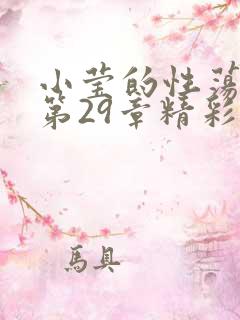 小莹的性荡
第29章精彩
馬具